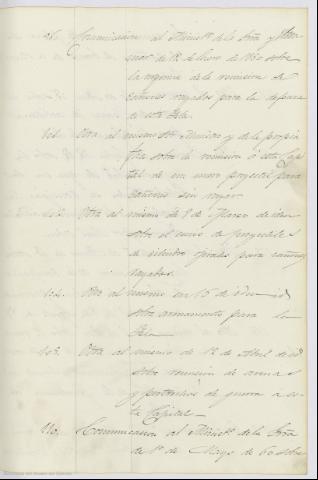 Comunicacion al Minist.º de la Grã y
de 12 de Enero de 1860 sobre
la urgencia de la remision de
cañones rayados para la defensa
de esta Isla.
Otra al mismo Sr. Ministro y de la propia
fha sobre la remision á esta Cap
tal de un nuevo proyectil para
cañones sin rayar
Otra al mismo de 8 de Marzo de
sobre el envio de proyectiles
de para cañones
rayados.
Otra al mismo en 15 de id
sobre armamento para la
Isla
Otra al mismo de 12 de Abril de id
sobre remision de armas
y pertrechos de guerra a es
ta Capital
110. Comunicacion al Minist.º de la Grã
de 1º de Mayo de 60 sobre